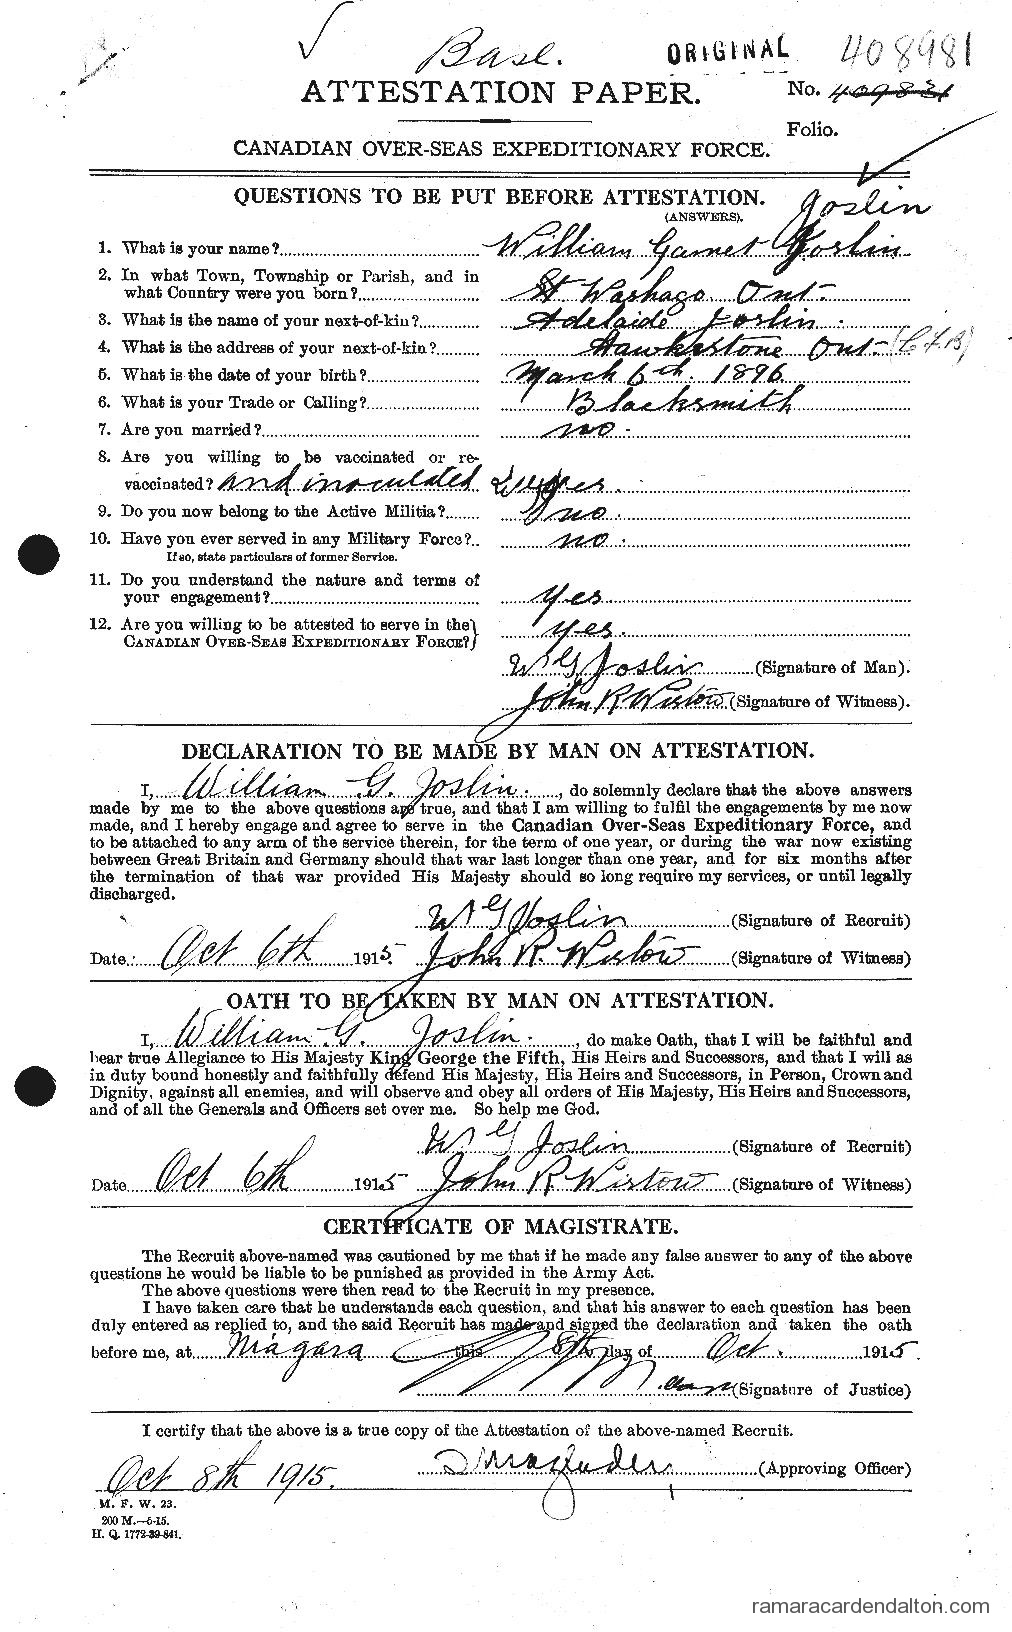 Base.
ORIGINAL 408981
ATTESTATION PAPER.
No. 409831
Folio.
CANADIAN OVER-SEAS EXPEDITIONARY FORCE.
QUESTIONS TO BE PUT BEFORE ATTESTATION.
(ANSWERS).
Joslin
1. What is your name? William Garnet Joslin
2. In what Town, Township or Parish, and in
what Country were you born? St Washago Ont.
3. What is the name of your next-of-kin? Adelaide Joslin.
4. What is the address of your next-of-kin? Hawkestone Ont.
5. What is the date of your birth? March 6th. 1896
6. What is your Trade or Calling? Blacksmith
7. Are you married? no.
8. Are you willing to be vaccinated or re-
vaccinated? and inoculated yes.
9. Do you now belong to the Active Militia? no.
10. Have you ever served in any Military Force? no.
If so, state particulars of former Service.
11. Do you understand the nature and terms of
your engagement? yes
12. Are you willing to be attested to serve in the
CANADIAN OVER-SEAS EXPEDITIONARY FORCE? yes.
W G Joslin (Signature of Man).
John R Wistow (Signature of Witness).
DECLARATION TO BE MADE BY MAN ON ATTESTATION.
I, William G. Joslin., do solemnly declare that the above answers
made by me to the above questions are true, and that I am willing to fulfil the engagements by me now
made, and I hereby engage and agree to serve in the Canadian Over-Seas Expeditionary Force, and
to be attached to any arm of the service therein, for the term of one year, or during the war now existing
between Great Britain and Germany should that war last longer than one year, and for six months after
the termination of that war provided His Majesty should so long require my services, or until legally
discharged.
W G Joslin (Signature of Recruit)
Date. Oct 6th 1915 John R. Wistow (Signature of Witness)
OATH TO BE TAKEN BY MAN ON ATTESTATION.
I, William G. Joslin., do make Oath, that I will be faithful and
bear true Allegiance to His Majesty King George the Fifth, His Heirs and Successors, and that I will as
in duty bound honestly and faithfully defend His Majesty, His Heirs and Successors, in Person, Crown and
Dignity, against all enemies, and will observe and obey all orders of His Majesty, His Heirs and Successors,
and of all the Generals and Officers set over me. So help me God.
W G Joslin (Signature of Recruit)
Date Oct 6th 1915 John R Wistow (Signature of Witness)
CERTIFICATE OF MAGISTRATE.
The Recruit above-named was cautioned by me that if he made any false answer to any of the above
questions he would be liable to be punished as provided in the Army Act.
The above questions were then read to the Recruit in my presence.
I have taken care that he understands each question, and that his answer to each question has been
duly entered as replied to, and the said Recruit has made and signed the declaration and taken the oath
before me, at Niagara this 8th day of Oct. 1915.
(Signature of Justice)
I certify that the above is a true copy of the Attestation of the above-named Recruit.
(Approving Officer)
Oct 8th 1915.
M. F. W. 23.
200 M.—6-15.
H. Q. 1772-39-841.
ramaracardendalton.com